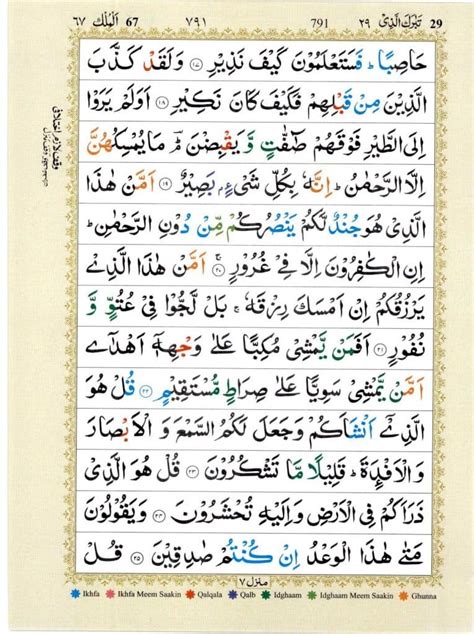 29 تَبٰرَكَ الَّذِیْ ٢٩ 791 ٧٩١ 67 اَلْمُلْك ٦٧
حَاصِبًا ؕ فَسَتَعْلَمُوْنَ كَیْفَ نَذِیْرِ ۝۱۷ وَلَقَدْ كَذَّبَ
الَّذِیْنَ مِنْ قَبْلِهِمْ فَكَیْفَ كَانَ نَكِیْرِ ۝۱۸ اَوَلَمْ یَرَوْا
اِلَی الطَّیْرِ فَوْقَهُمْ صٰٓفّٰتٍ وَّ یَقْبِضْنَ ؔۘ مَا یُمْسِكُهُنَّ
اِلَّا الرَّحْمٰنُ ؕ اِنَّهٗ بِكُلِّ شَیْءٍۭ بَصِیْرٌ ۝۱۹ اَمَّنْ هٰذَا
الَّذِیْ هُوَ جُنْدٌ لَّكُمْ یَنْصُرُكُمْ مِّنْ دُوْنِ الرَّحْمٰنِ ؕ
اِنِ الْكٰفِرُوْنَ اِلَّا فِیْ غُرُوْرٍ ۝۲۰ اَمَّنْ هٰذَا الَّذِیْ
یَرْزُقُكُمْ اِنْ اَمْسَكَ رِزْقَهٗ ۚ بَلْ لَّجُّوْا فِیْ عُتُوٍّ وَّ
نُفُوْرٍ ۝۲۱ اَفَمَنْ یَّمْشِیْ مُكِبًّا عَلٰی وَجْهِهٖۤ اَهْدٰۤی
اَمَّنْ یَّمْشِیْ سَوِیًّا عَلٰی صِرَاطٍ مُّسْتَقِیْمٍ ۝۲۲ قُلْ هُوَ
الَّذِیْۤ اَنْشَاَكُمْ وَجَعَلَ لَكُمُ السَّمْعَ وَ الْاَبْصَارَ
وَ الْاَفْـِٕدَةَ ؕ قَلِیْلًا مَّا تَشْكُرُوْنَ ۝۲۳ قُلْ هُوَ الَّذِیْ
ذَرَاَكُمْ فِی الْاَرْضِ وَ اِلَیْهِ تُحْشَرُوْنَ ۝۲۴ وَیَقُوْلُوْنَ
مَتٰی هٰذَا الْوَعْدُ اِنْ كُنْتُمْ صٰدِقِیْنَ ۝۲۵ قُلْ
منزل ٧
Ikhfa Ikhfa Meem Saakin Qalqala Qalb Idghaam Idghaam Meem Saakin Ghunna
وقف لازم اختلافی